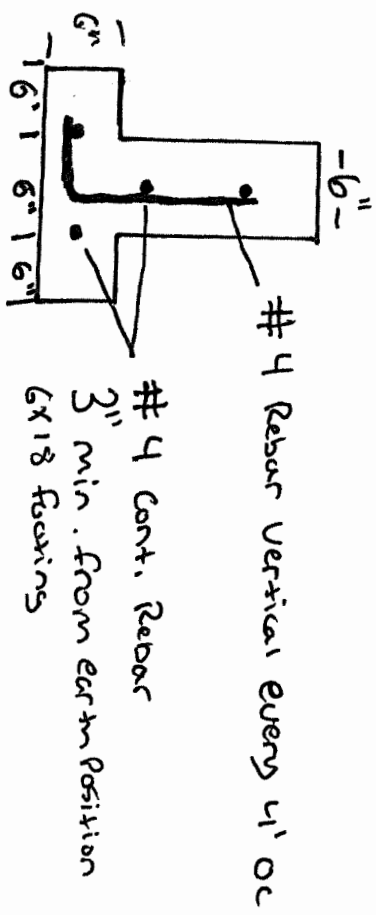 -6"-
6"
6" 6" 6"
#4 Rebar vertical every 4' OC
#4 Cont. Rebar
3" min. from earth Position
6x18 footing